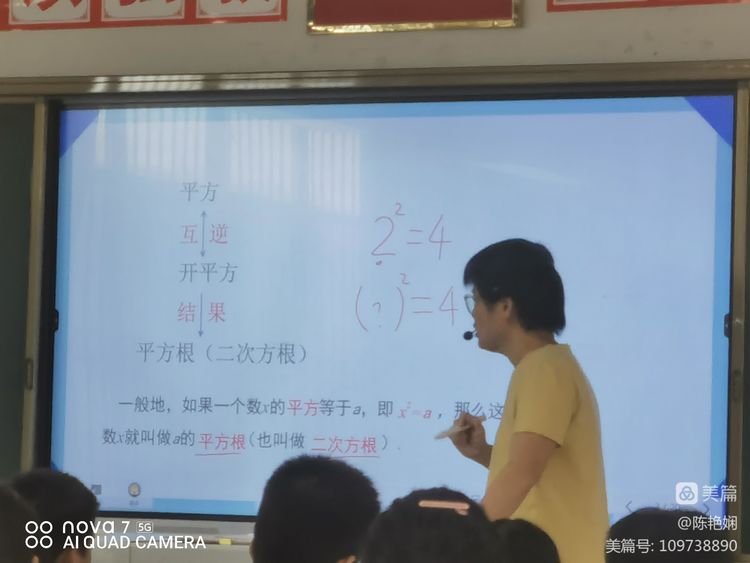 平方
互逆
开平方
结果
平方根（二次方根）
2²=4
(?)²=4
一般地，如果一个数x的平方等于a，即 x²=a ，那么这
数x就叫做a的 平方根(也叫做 二次方根) .
nova 7 5G
AI QUAD CAMERA
美篇
@陈艳娴
美篇号: 109738890